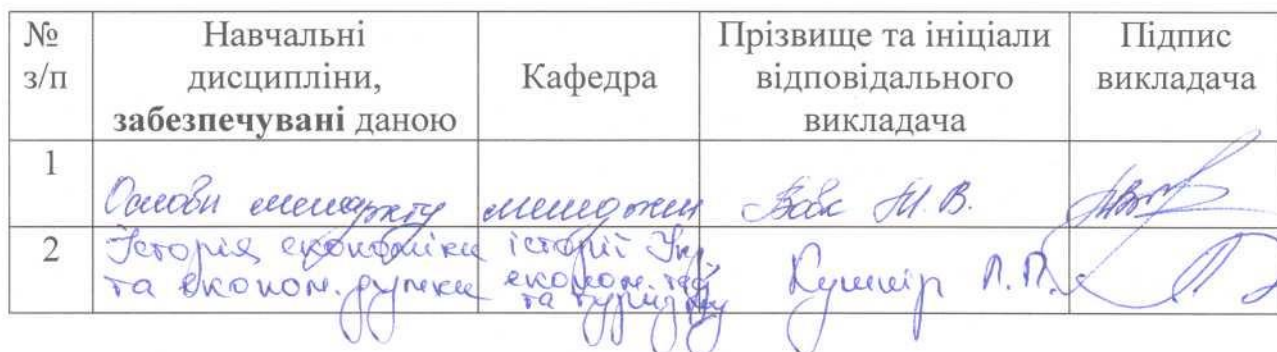 № з/п
Навчальні дисципліни, забезпечувані даною
Кафедра
Прізвище та ініціали відповідального викладача
Підпис викладача
1
Основи менеджменту
менеджмен
Вовк
2
Історія економіки та економ. думки
історії Укр. економ. теор та туризму
Кушнір Л.П.